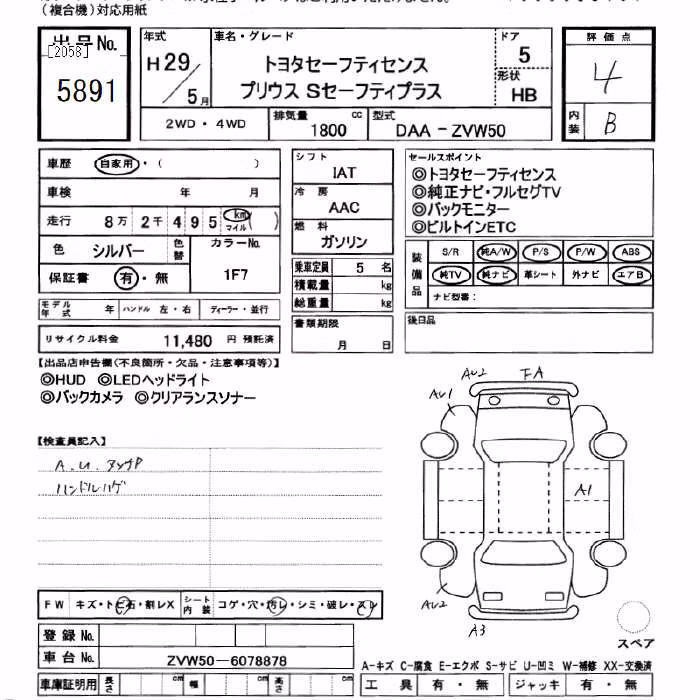 (複合機)対応用紙
出品No.
[2058]
5891
年式
H29/5月
車名・グレード
トヨタセーフティセンス
プリウス Sセーフティプラス
ドア
5
形状
HB
評価点
4
内装
B
2WD・4WD
排気量
1800cc
型式
DAA-ZVW50
車歴
自家用・( )
車検 年 月
走行 8万 2千 4 9 5 km マイル ( )
色 シルバー
色替
カラーNo.
1F7
保証書 有・無
モデル年式 年 ハンドル 左・右 ディーラー・並行
リサイクル料金 11,480 円 預託済
シフト
IAT
冷房
AAC
燃料
ガソリン
乗車定員 5 名
積載量 kg
総重量 kg
書類期限
月 日
セールスポイント
◎トヨタセーフティセンス
◎純正ナビ・フルセグTV
◎バックモニター
◎ビルトインETC
装備品
S/R 純A/W P/S P/W ABS
純TV 純ナビ 革シート 外ナビ エアB
ナビ型番:
後日品
【出品店申告欄(不良箇所・欠品・注意事項等)】
◎HUD ◎LEDヘッドライト
◎バックカメラ ◎クリアランスソナー
【検査員記入】
A.U.アッチP
ハンドルハゲ
AU2 FA
AU1
A1
AU2
A3
スペア
FW キズ・トビ石・割レX
シート内装 コゲ・穴・汚レ・シミ・破レ・スレ
登録No.
車台No. ZVW50-6078878
車庫証明用 長さ cm 幅 cm 高さ cm
A-キズ C-腐食 E-エクボ S-サビ U-凹ミ W-補修 XX-交換済
工具 有・無 ジャッキ 有・無